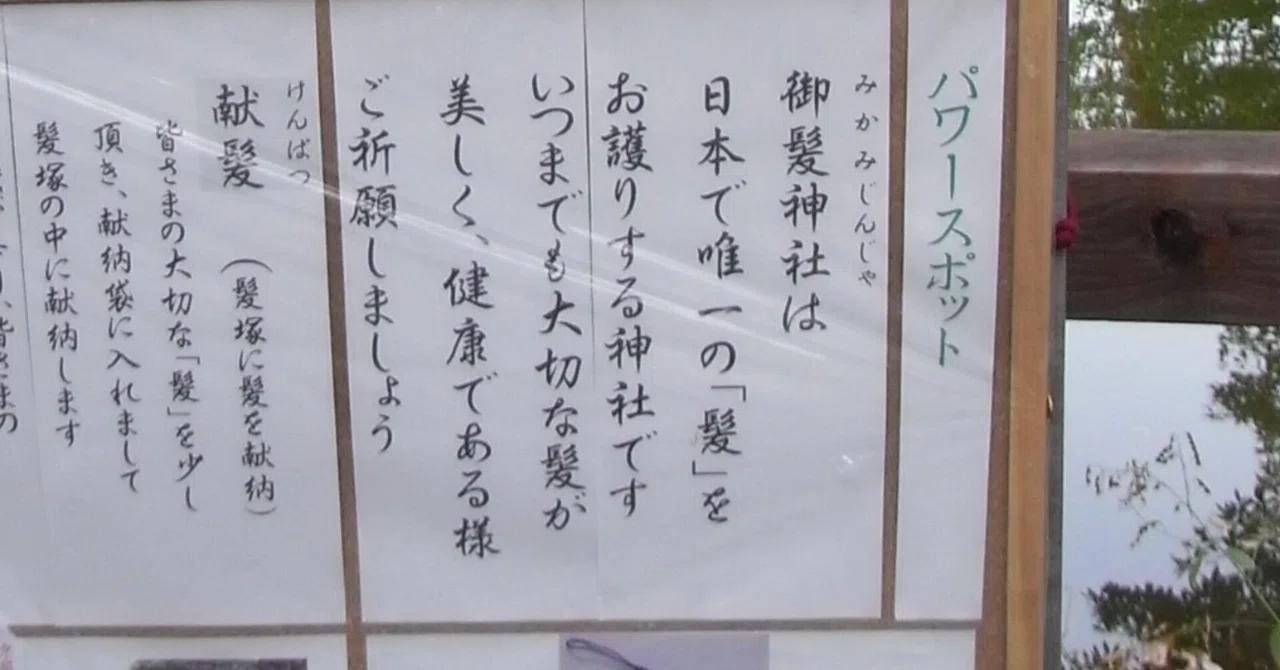 パワースポット
みかみじんじゃ
御髪神社は
日本で唯一の「髪」を
お護りする神社です
いつまでも大切な髪が
美しく、健康である様
ご祈願しましょう
けんぱつ
献髪 (髪塚に髪を献納)
皆さまの大切な「髪」を少し
頂き、献納袋に入れまして
髪塚の中に献納します
皆さまの